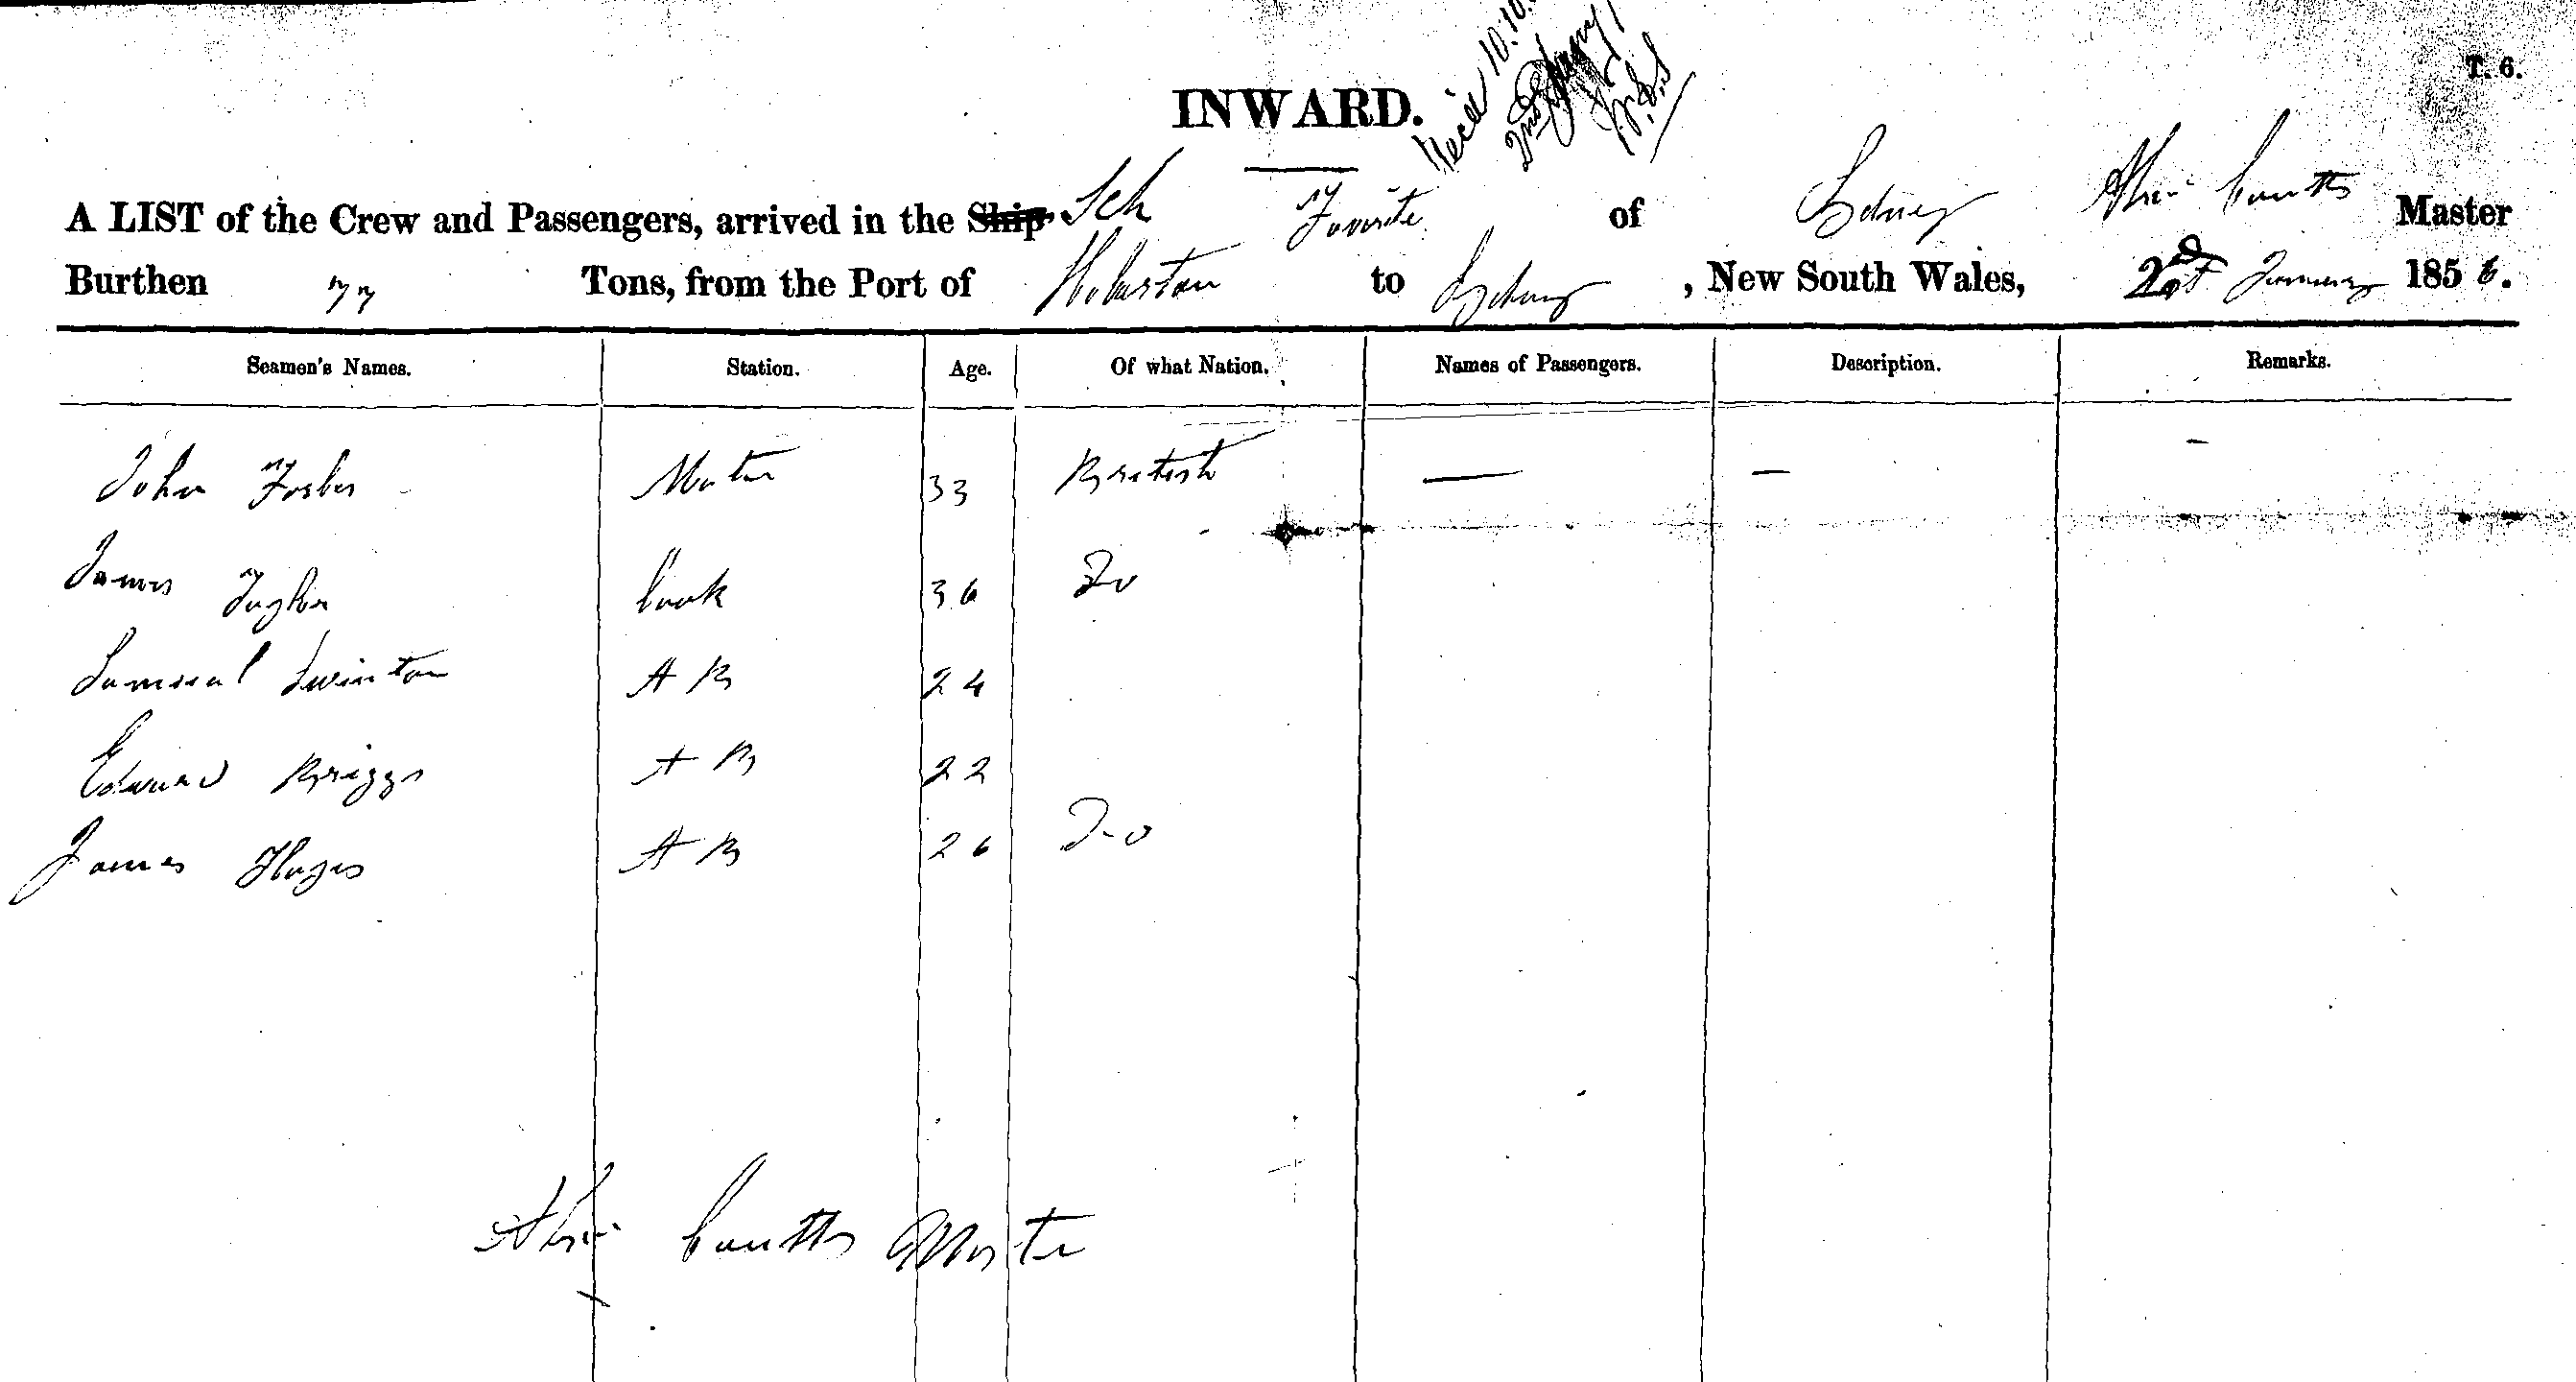 T. 6.
INWARD.
2nd
A LIST of the Crew and Passengers, arrived in the Ship Sch Favorite of Sydney Alexr Coutts Master
Burthen 77 Tons, from the Port of Hobarton to Sydney, New South Wales, 2d January 1856.
Seamen's Names. Station. Age. Of what Nation. Names of Passengers. Description. Remarks.
John Forbes Mate 33 British — — -
James Taylor Cook 36 Do
Samueal Swinton A B 24
Edward Briggs A B 22
James A B 26 Do
Coutts Master